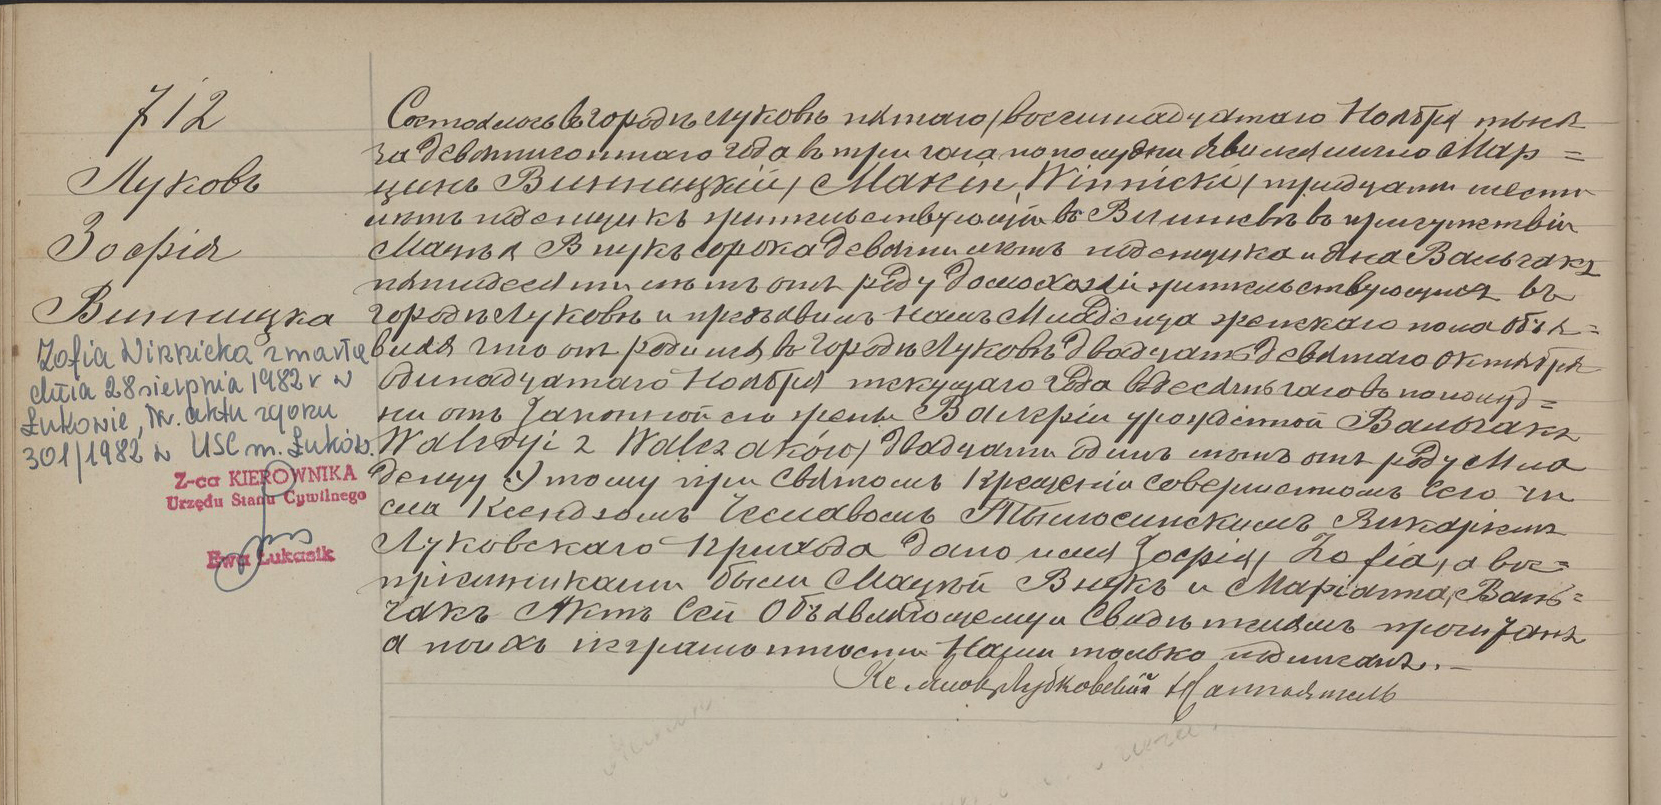 712
Луковъ
Зофія
Винницка
Zofia Winnicka zmarła
dnia 28 sierpnia 1982 r w
Łukowie, Nr. aktu zgonu
301/1982 w USC m. Łuków.
Z-ca KIEROWNIKA
Urzędu Stanu Cywilnego
Ewa Łukasik
Состоялось въ городѣ Луковѣ пятаго/восемнадцатаго Ноября тыся
ча девятисотаго года въ три часа по полудни Явился лично Мар=
цинъ Винницкій, /Marcin Winnicki/ тридцати шести
лѣтъ поденщикъ жительствующій въ въ присутствіи
Мацѣя Внукъ сорока девяти лѣтъ поденщика и Яна Вальчакъ
пятидесяти лѣтъ отъ роду домохозяи жительствующихъ въ
городѣ Луковѣ и предъявилъ намъ Младенца женскаго пола объя=
вляя что онъ родился въ городѣ Луковѣ двадцать девятаго октября
одинадцатаго Ноября текущаго года въ десять часовъ по полуд=
ни отъ законной его жены Валеріи урожденной Вальчакъ
Waleryi z Walczaków/ двадцати одинъ лѣтъ отъ роду Мла
денцу Этому при Святомъ Крещеніи совершенномъ сего чи
сла Ксендзомъ Чеславомъ Викаріемъ
Луковскаго Прихода дано имя Зофія, Zofia, а вос=
пріемниками были Мацѣй Внукъ и Маріанна Валь=
чакъ Актъ Сей Объявляющему и Свидѣтелямъ прочитанъ
а по ихъ неграмотности Нами только подписанъ. –
Кс. Содержатель